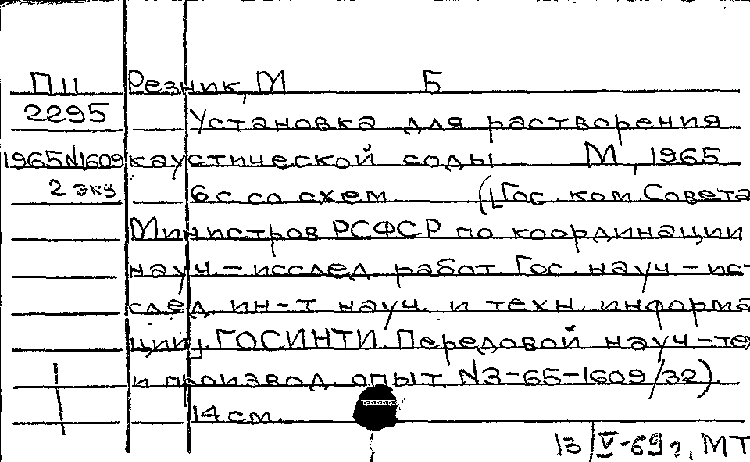 П11 Резник, М Б
2295 Установка для растворения
1965N1609 каустической соды М, 1965
2 экз 6 с. со схем. (Гос. ком. Совета
Министров РСФСР по координации
науч.-исслед. работ Гос. науч.-ис-
след. ин-т науч. и техн. информа
ции. ГОСИНТИ. Передовой науч.-те
и производ. опыт. N3-65-1609/32).
14 см.
13/V-69 г. МТ